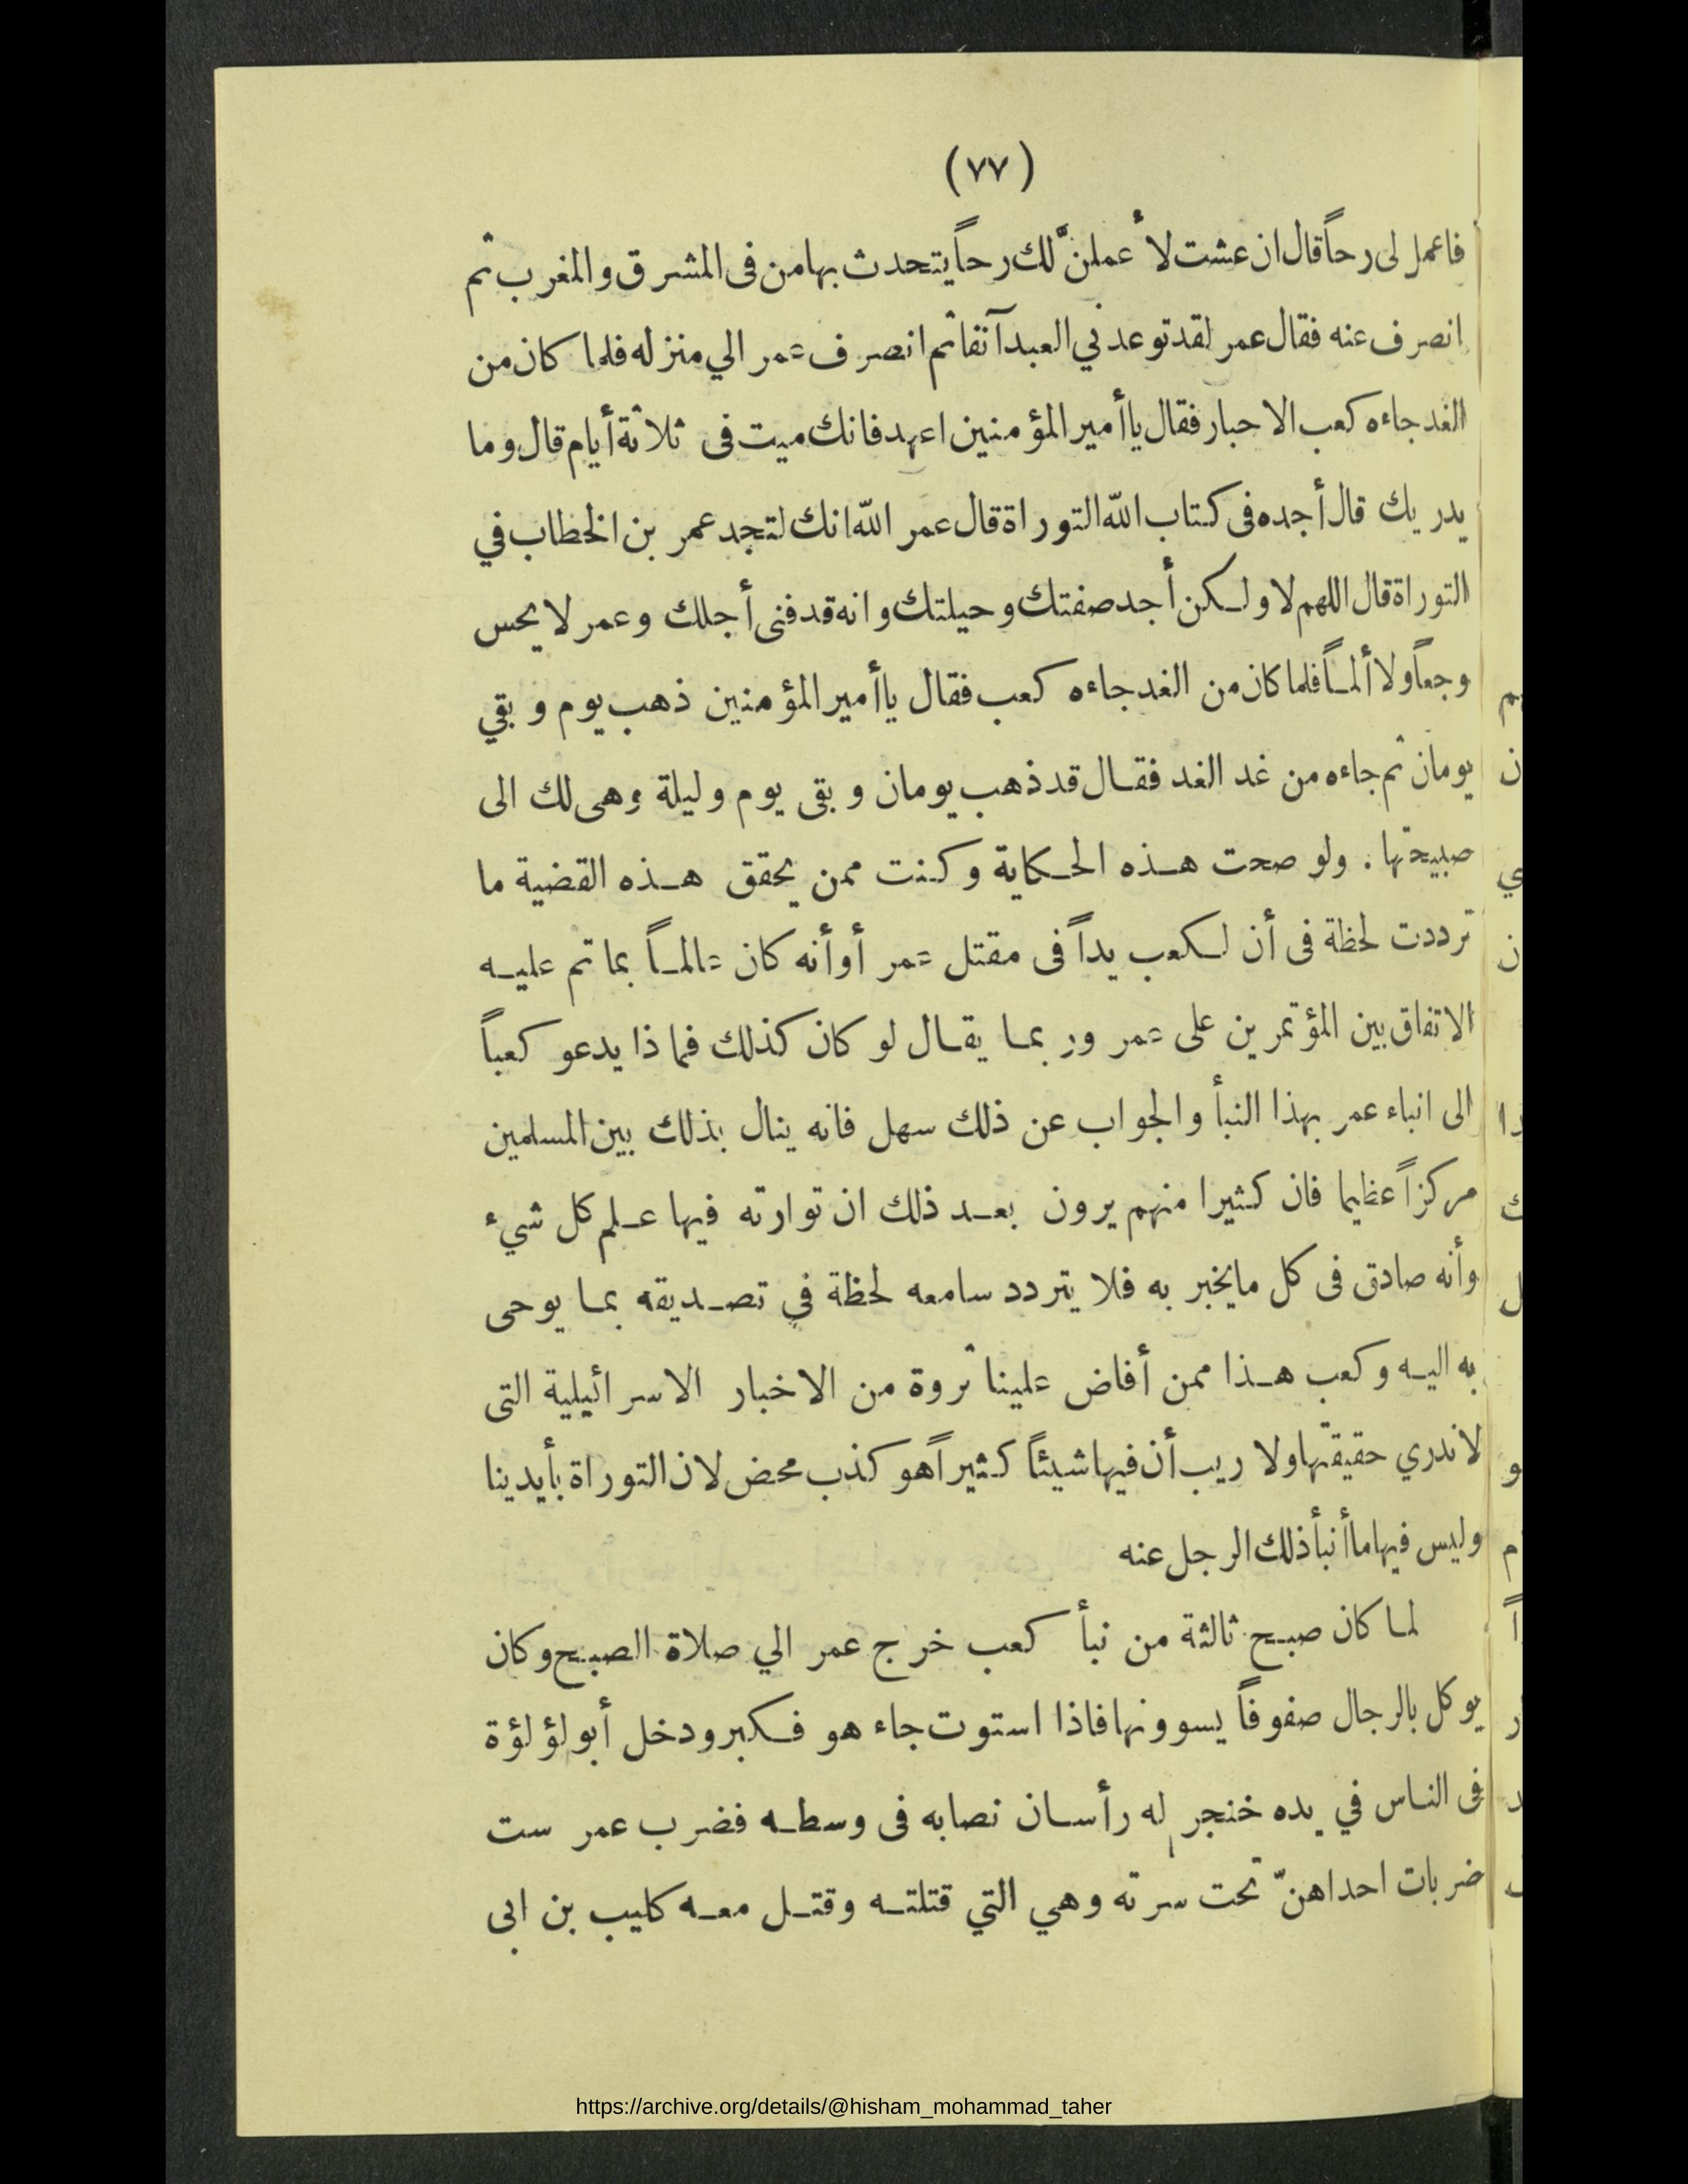 (٧٧)
فاعمل لى رحاً قال ان عشت لأعملنَّ لك رحاً يتحدث بها من فى المشرق والمغرب ثم
انصرف عنه فقال عمر لقد توعدني العبد آنفا ثم انصرف عمر الي منزله فلما كان من
الغد جاءه كعب الاحبار فقال يا أمير المؤمنين اعهد فانك ميت فى ثلاثة أيام قال وما
يدريك قال أجده فى كتاب الله التوراة قال عمر الله انك لتجد عمر بن الخطاب في
التوراة قال اللهم لا ولكن أجد صفتك وحيلتك وانه قد فنى أجلك وعمر لا يحس
وجعاً ولا ألماً فلما كان من الغد جاءه كعب فقال يا أمير المؤمنين ذهب يوم وبقي
يومان ثم جاءه من غد الغد فقال قد ذهب يومان وبقى يوم وليلة وهى لك الى
صبيحتها . ولو صحت هذه الحكاية وكنت ممن يحقق هذه القضية ما
ترددت لحظة فى أن لكعب يداً فى مقتل عمر أو أنه كان عالماً بما تم عليه
الاتفاق بين المؤتمرين على عمر وربما يقال لو كان كذلك فماذا يدعو كعباً
الى انباء عمر بهذا النبأ والجواب عن ذلك سهل فانه ينال بذلك بين المسلمين
مركزاً عظيما فان كثيرا منهم يرون بعد ذلك ان توارته فيها علم كل شيء
وأنه صادق فى كل ما يخبر به فلا يتردد سامعه لحظة في تصديقه بما يوحى
به اليه وكعب هذا ممن أفاض علينا ثروة من الاخبار الاسرائيلية التى
لا ندري حقيقتها ولا ريب أن فيها شيئاً كثيراً هو كذب محض لان التوراة بأيدينا
وليس فيها ما أنبأ ذلك الرجل عنه
لما كان صبح ثالثة من نبأ كعب خرج عمر الي صلاة الصبح وكان
يوكل بالرجال صفوفاً يسوونها فاذا استوت جاء هو فكبر ودخل أبو لؤلؤة
فى الناس في يده خنجر له رأسان نصابه فى وسطه فضرب عمر ست
ضربات احداهنّ تحت سرته وهي التي قتلته وقتل معه كليب بن ابى
https://archive.org/details/@hisham_mohammad_taher